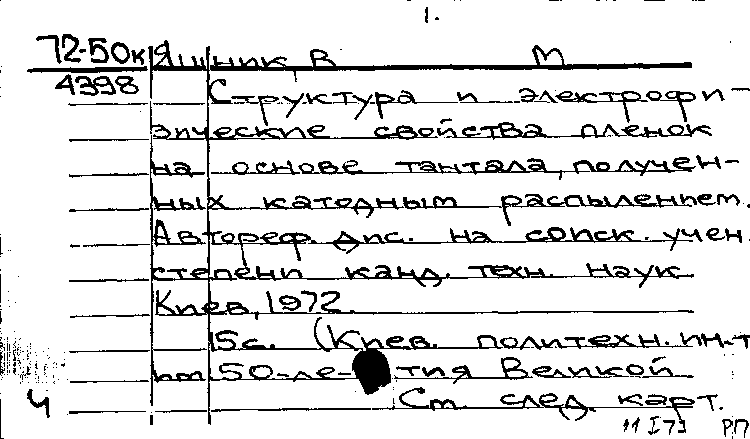 1.
72-50к Ящник, В М
4398 Структура и электрофи-
зические свойства пленок
на основе тантала, получен-
ных катодным распылением.
Автореф. дис. на соиск. учен.
степени канд. техн. наук
Киев, 1972.
15с. (Киев. политехн. ин-т
им. 50-ле-тия Великой
Ч Ст. след. карт.
11 I 73 РП